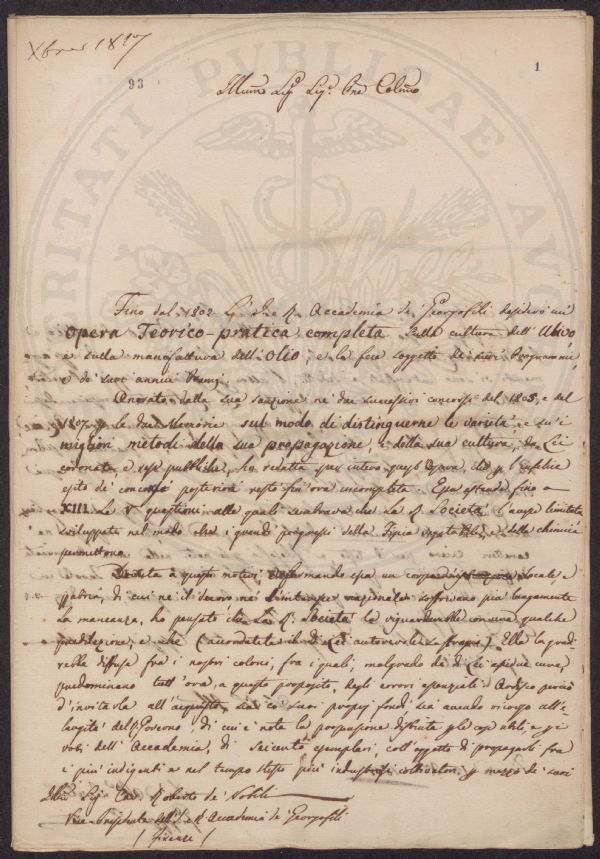 Xbre 1817
93
1
Illmo Sig. Sig. Pne Colmo
Fino dal 1802 l'I. e R. Accademia de' Georgofili desiderò un'
opera Teorico-pratica completa sulla cultura dell'Ulivo
e sulla manifattura dell'olio; e la fece soggetto de' suoi Programmi,
e de' suoi annui Premj.
Onorate della sua sanzione ne' due successivi concorsi del 1805, e del
1807 le due Memorie sul modo di distinguerne le varietà, e su'i
migliori metodi della sua propagazione, e della sua cultura, da Lei
coronate e rese pubbliche, ho redatta per intero quest'Opera, che l'infelice
esito de' concorsi posteriori restò fin'ora incompleta. Essa ascende fino a
XIII le questioni, alle quali sembrava che la R. Società l'avesse limitata
sviluppate nel modo che i grandi progressi della Fisica vegetabile, e della chimica
permettono.
a questi motivi, e formando essa un corpo locale, e
patria, di cui nè il decoro nè l'interesse nazionale soffrivano più lungamente
la mancanza, ho pensato che la R. Società la riguarderebbe con una qualche
predilezione, e che (accordatale il di Lei autorevole suffragio) Ella la gradi-
rebbe diffusa fra i nostri coloni, fra i quali, malgrado di di Lei assidue cure,
predominano tutt'ora, a questo proposito, degli errori essenziali. Ardisco perciò
d'invitarla all'acquisto, sia co' suoi propri fondi, sia avendo ricorso all'e-
largità del R. Governo, di cui è nota la propensione distinta per le cose utili, e pe'
voti dell'Accademia, di Seicento esemplari, coll'oggetto di propagarli fra
i più indigenti e nel tempo stesso più industriosi coltivatori per mezzo de' suoi
Illmo Sig. Cav. Roberto de' Nobili
Vice-Presidente dell'I. e R. Accademia de' Georgofili
(Firenze)
PVBLICAE